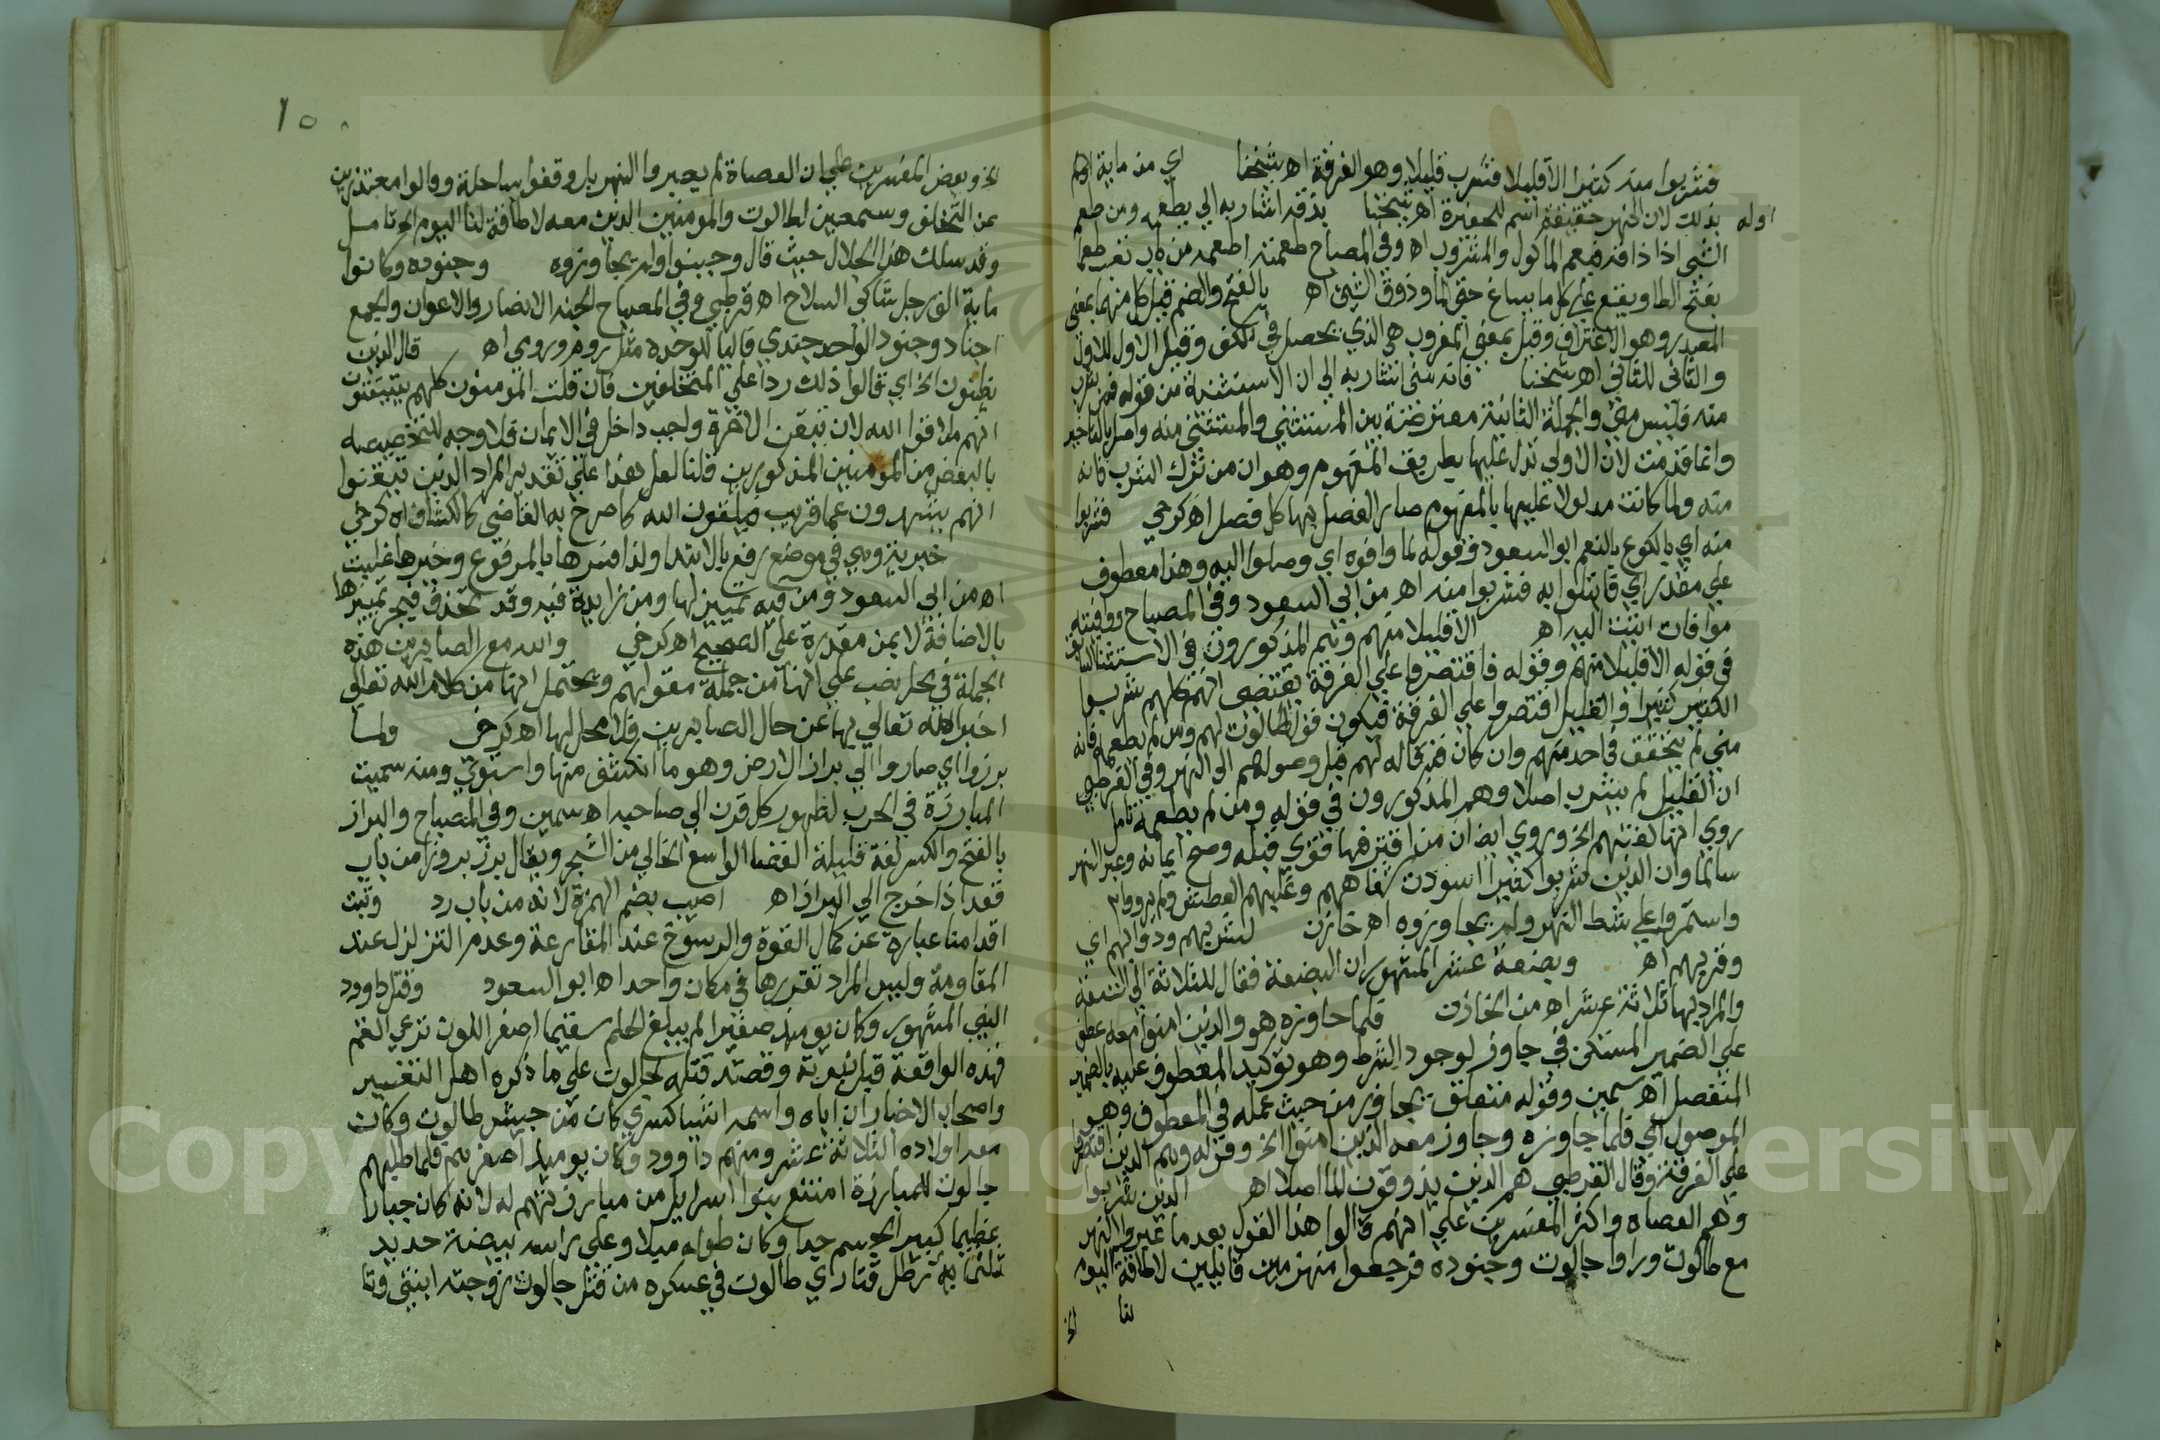 فشربوا منه كثيرا الا قليلا فشرب قليلا وهو الغرفة اه شيخنا اي من مايه اوله
بذلك لان النهر حقيقة اسم للحفرة اه شيخنا يذقه اشار به الي يطعمه ومن طعم
الشي اذا ذاقه فيعم الماكول والمشروب اه وفي المصباح طعمته اطعمه من باب تعب طعما
بفتح الطا ويقع علي كل ما يساغ حتي الما وذوق الشي اه بالفتح والضم قيل كل منهما بمعني
المصدر وهو الاغتراف وقيل بمعني المغروف هي الذي يحصل في الكف وقيل الاول للاول
والثاني للثاني اه شيخنا فانه مني اشار به الي ان الاستثناء من قوله فمن شرب
منه فليس مني والجملة الثانية معترضة بين المستثني والمستثني منه واصلها التاخير
وانما قدمت لان الاولي تدل عليها بطريق المفهوم وهو ان من ترك الشرب فانه
منه ولما كانت مدلولا عليها بالمفهوم صار الفصل بها كلا فصل اه كرخي فشربوا
منه اي بالكرع بالفم ابو السعود فقوله لما وافوه اي وصلوا اليه وهذا معطوف
علي مقدر اي فابتلوا به فشربوا منه اه من ابي السعود وفي المصباح ووافيته
موافاة اتيت اليه اه الا قليلا منهم وهم المذكورون في الاستثنا السابق
في قوله الا قليلا منهم وقوله فاقتصروا علي الغرفة يقتضي انهم كلهم شربوا
الكثير كثيرا والقليل اقتصروا علي الغرفة فيكون قول طالوت لهم ومن لم يطعمه فانه
مني لم يتحقق في احد منهم وان كان قد قاله لهم قبل وصولهم الي النهر وفي القرطبي
ان القليل لم يشرب اصلا وهم المذكورون في قوله ومن لم يطعمه تامل
روي انها كفتهم الخ وروي ايضا ان من اقترفها قوي قبله وصح ايمانه وعبر النهر
سالما وان الذين شربوا كثيرا اسودت شفاههم وغلبهم العطش ولم يرووا
واستمروا علي شط النهر ولم يجاوزوه اه خازن لشربهم ودوابهم اي
وقربهم اه وبضعة عشر المشهور ان البضعة فقال للثلاثة الي التسعة
والمراد بها ثلاثة عشر اه من الخازن فلما جاوزه هو والذين امنوا معه عطف
علي الضمير المستكن في جاوز لوجود الشرط وهو توكيد المعطوف عليه بالضمير
المنفصل اه سمين وقوله متعلق بجاوز من حيث عمله في المعطوف وهو
الموصول اي فلما جاوزه وجاوز معه الذين امنوا الخ وقوله وهم الذين اقتصروا
علي الغرفة وقال القرطبي هم الذين يذوقون الما اصلا اه الذين شربوا
وهم العصاه واكثر المفسرين علي انهم قالوا هذا القول بعد ما عبروا النهر
مع طالوت وراوا جالوت وجنوده فرجعوا منهزمين قايلين لا طاقة اليوم
لنا
الخ
١٥٠
الخ وبعض المفسرين علي ان العصاة لم يعبروا النهر بل وقفوا بساحله وقالوا معتذرين
عن التخلف وسمعين لطالوت والمومنين الذين معه لا طاقة لنا اليوم الخ تامل
وقد سلك هذا الجلال حيث قال وجبنوا ولم يجاوزوه وجنوده وكانوا
ماية الف رجل شاكي السلاح اه قرطبي وفي المصباح الجند الانصار والاعوان والجمع
اجناد وجنود الواحد جندي فاليا للوحدة مثل روم ورومي اه قال الذين
يظنون الخ اي قالوا ذلك ردا علي المتخلفين فان قلت المومنون كلهم يتيقنون
انهم ملاقوا الله لان تيقن الاخرة واجب داخل في الايمان فلا وجه لتخصيصه
بالبعض من المومنين المذكورين قلنا لعل هذا علي تقدير المراد الذين تيقنوا
انهم يستشهدون عما قريب فيلقون الله كما صرح به القاضي كالكشاف اه كرخي
خبرية وهي في موضع رفع بالابتدا ولذا فسرها بالمرفوع وخبرها غلبت
اه من ابي السعود ومن فية تمييز لها ومن زايدة فيه وقد تحذف فيجر تمييزها
بالاضافة لا بمن مقدرة علي الصحيح اه كرخي والله مع الصابرين هذه
الجملة في محل نصب علي انها من جملة مقولهم ويحتمل انها من كلام الله تعالي
اخبر الله تعالي بها عن حال الصابرين فلا محل لها اه كرخي ولما
برزوا اي صاروا الي براز الارض وهو ما انكشف منها واستوي ومنه سميت
المبارزة في الحرب لظهور كل قرن الي صاحبه اه سمين وفي المصباح والبراز
بالفتح والكسر لغة قليلة الفضا الواسع الخالي من الشجر ويقال برز بروزا من باب
قعد اذا خرج الي البراز اه اصبب بضم الهمزة لانه من باب رد وثبت
اقدامنا عبارة عن كمال القوة والرسوخ عند المقارعة وعدم التزلزل عند
المقاومة وليس المراد تقررها في مكان واحد اه ابو السعود وقتل داوود
النبي المشهور وكان يوميذ صغيرا لم يبلغ الحلم سقيما اصفر اللون يرعي الغنم
فهذه الواقعة قبل نبوته وقصة قتله لجالوت علي ما ذكره اهل التفسير
واصحاب الاخبار ان اباه واسمه ايشا كسري كان من جيش طالوت وكان
معه اولاده الثلاثة عشر ومنهم داوود وكان يوميذ اصغرهم فلما طلبهم
جالوت للمبارزة امتنع بنوا اسرايل من مبارزتهم له لانه كان جبارا
عظيما كبير الجسم جدا وكان طوله ميلا وعلي راسه بيضة حديد
ثلثماية رطل فنادي طالوت في عسكره من قتل جالوت زوجته ابنتي وقا
Copyright © King Saud University